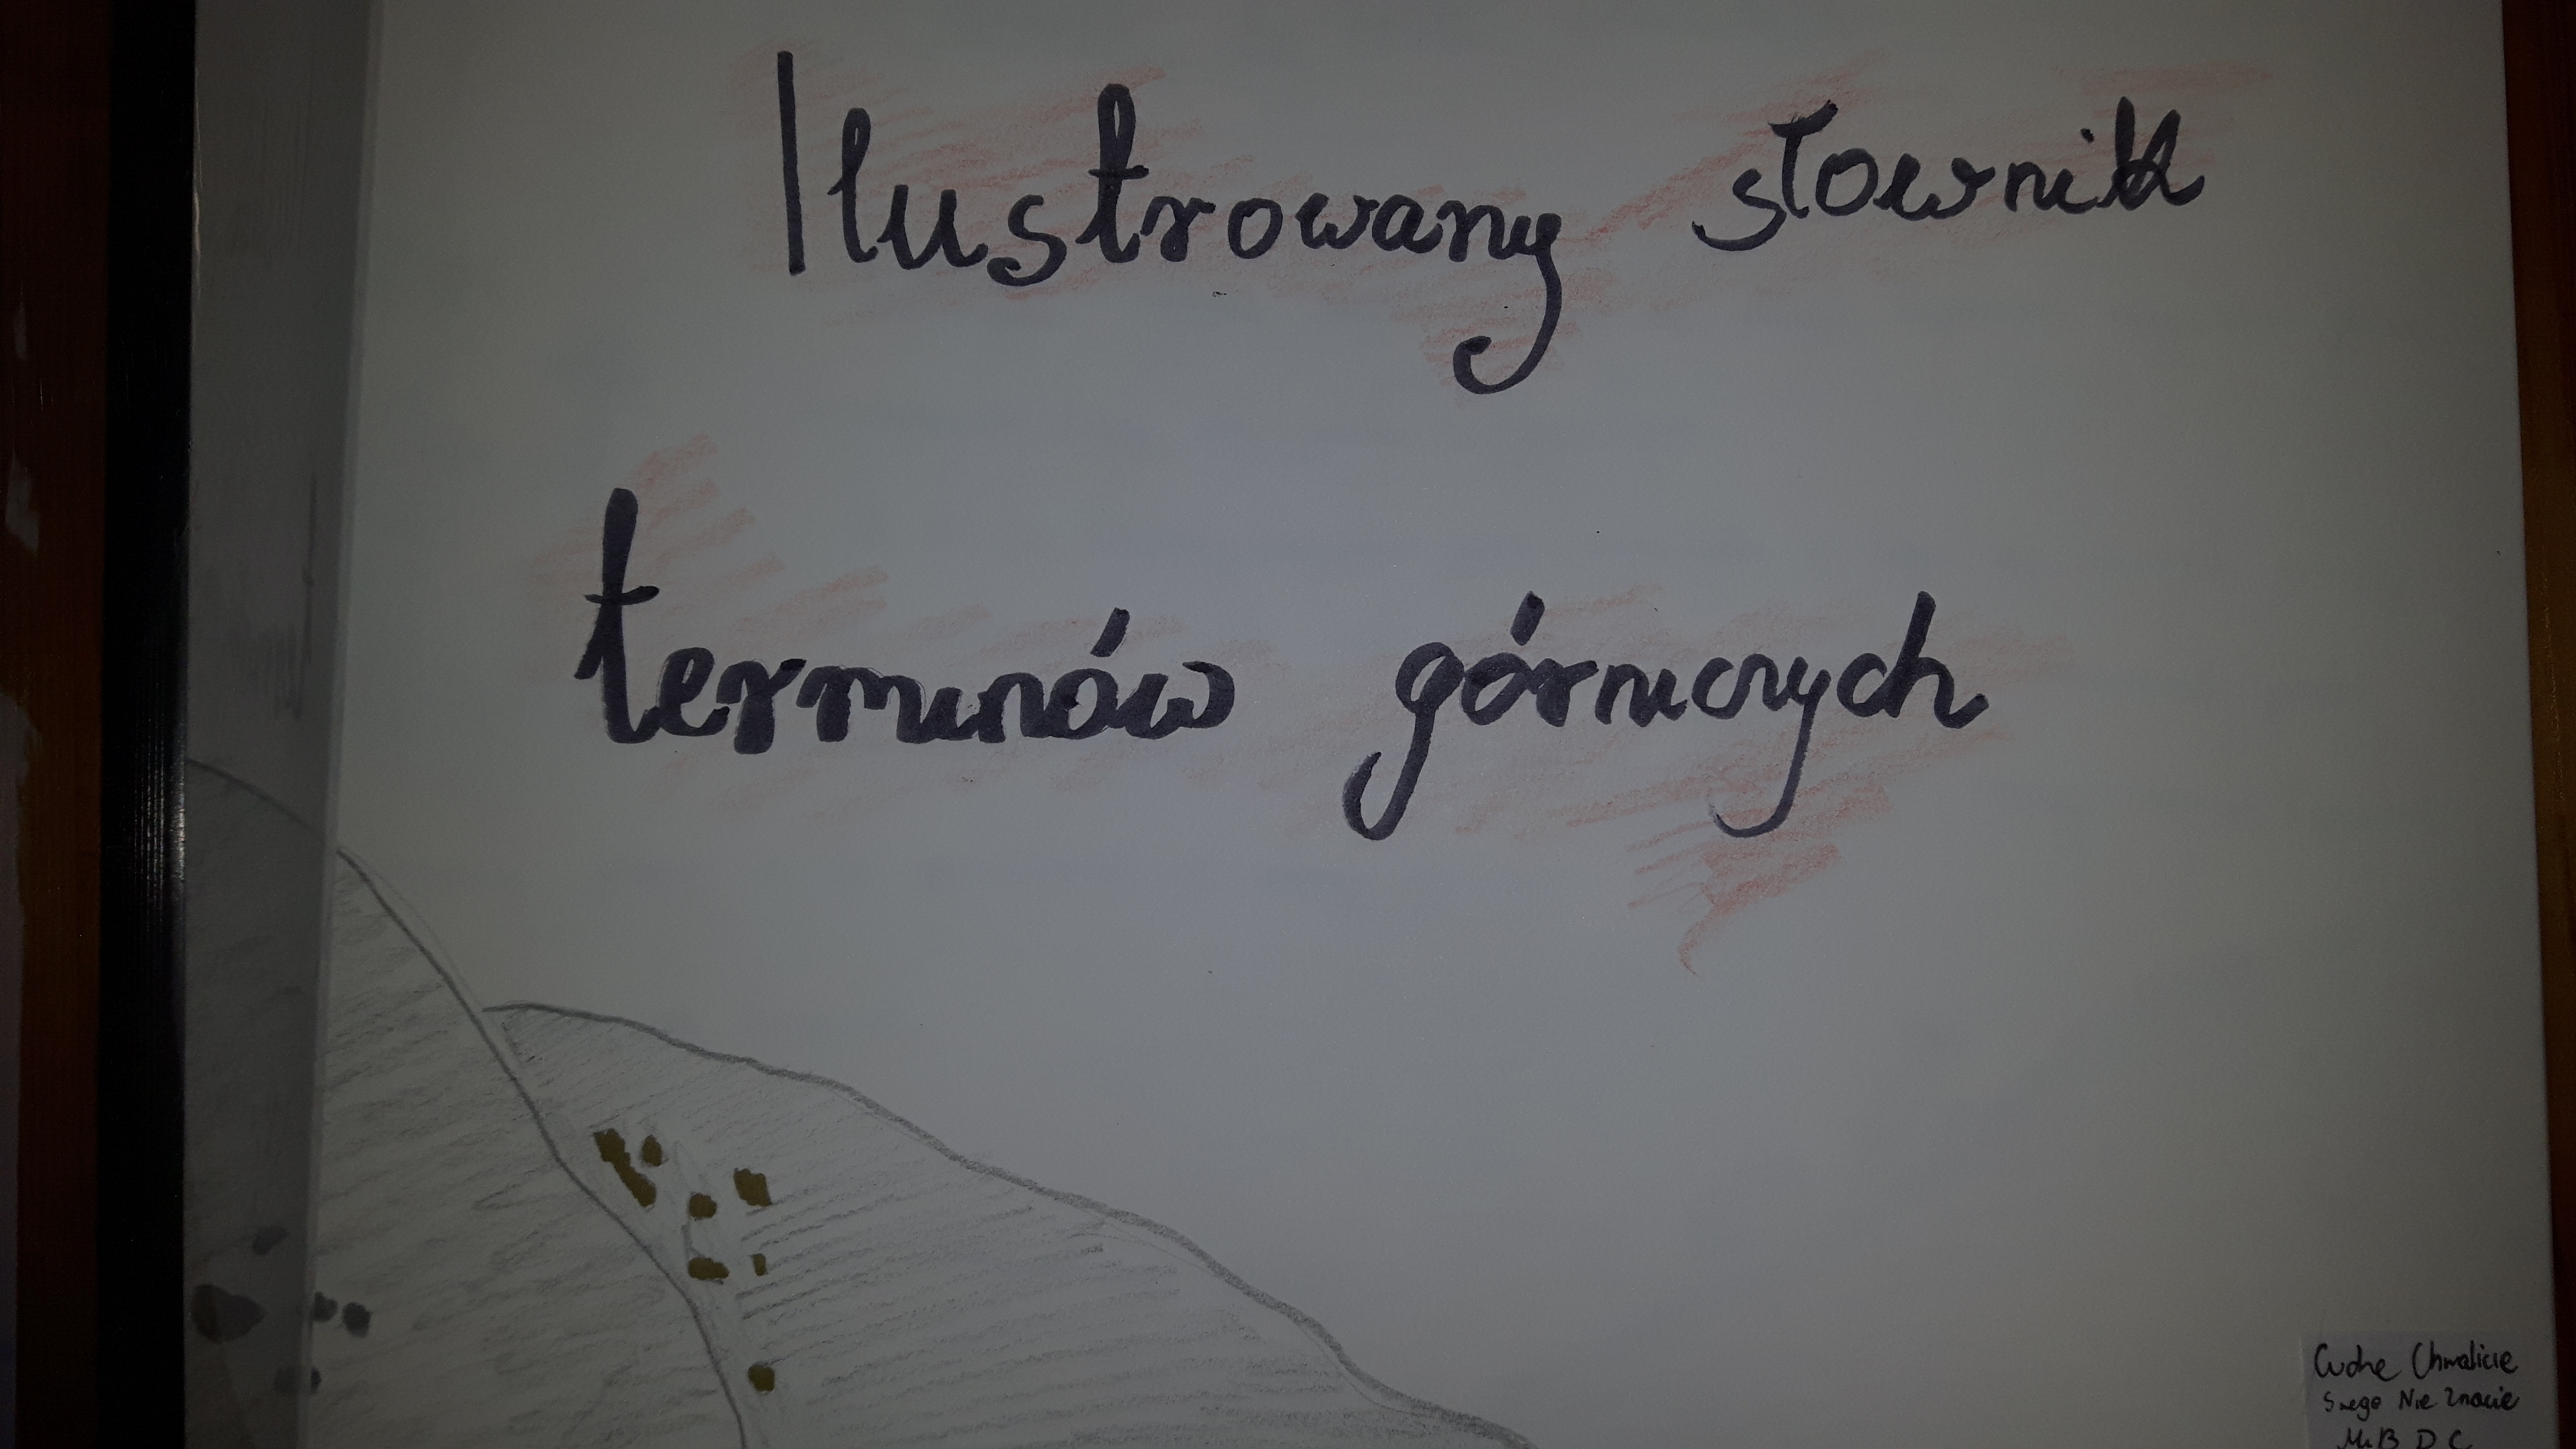 Ilustrowany słownik
terminów górniczych
Cudze Chwalicie
Swego Nie Znacie